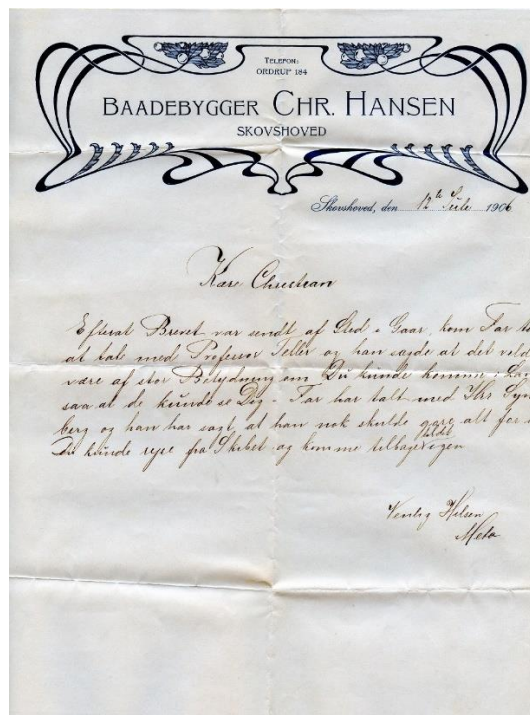 TELEFON:
ORDRUP 184
BAADEBYGGER CHR. HANSEN
SKOVSHOVED
Skovshoved, den 12te Juli 1906
Kære Christian
Efterat Brevet var sendt af Sted i Gaar, kom Far
at tale med Professor Teller og han sagde at det vilde
være af stor Betydning om Du kunde komme i
saa at de kunde se Dig - Far har talt med Hrs
berg og han har sagt at han nok skulde gøre alt for
Du kunde rejse fra Skibet og komme tilbage igen
Venlig Hilsen
Meta